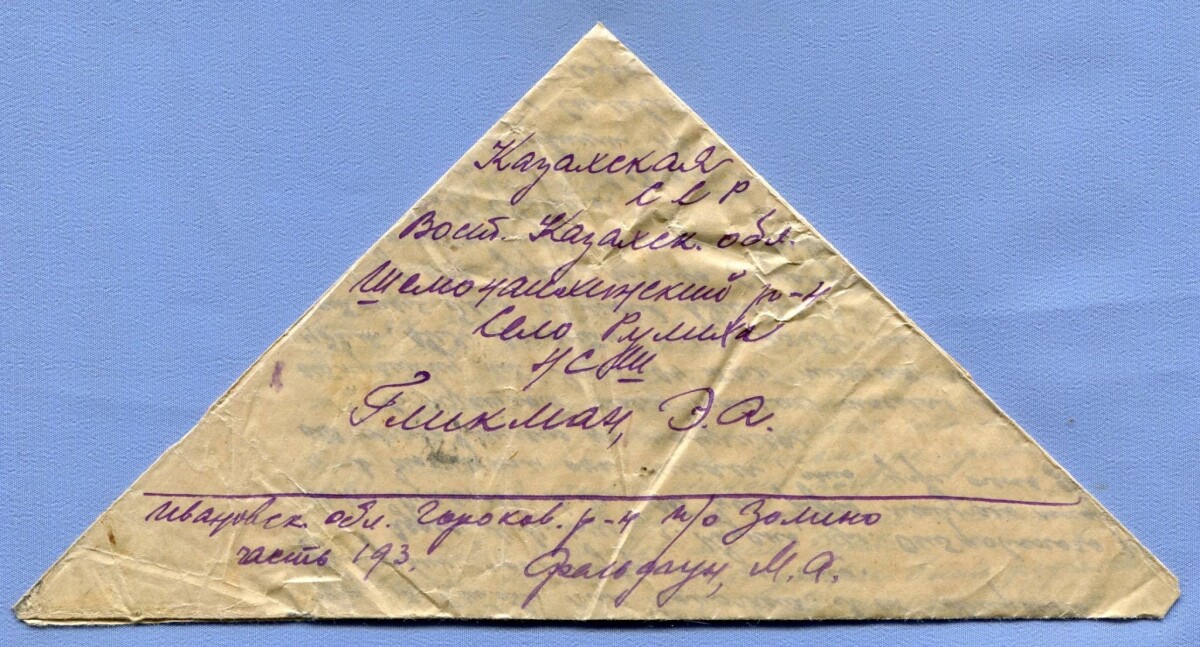 Казахская
ССР
Вост. Казахск. обл.
Шемонаихинский р-н
Село Румиха
НСШ
Гликман, Э.А.
Ивановск. обл. Гороков. р-н п/о Золино
часть 193. М.А.